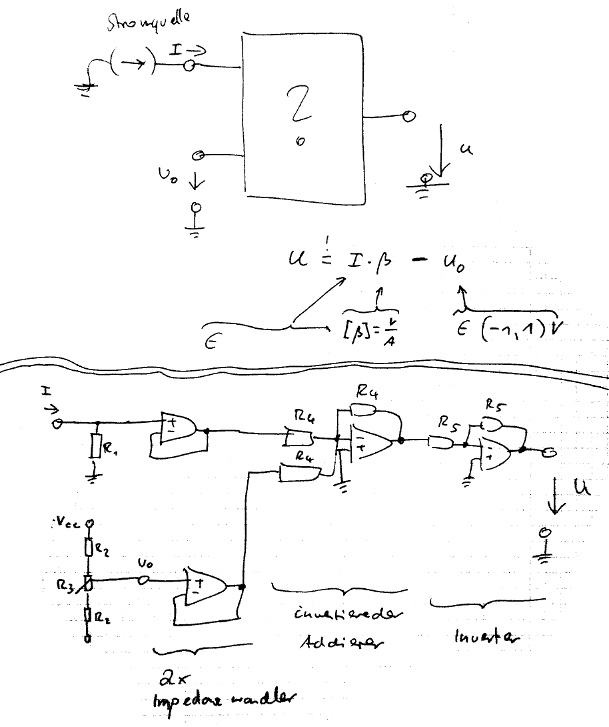 Stromquelle
I →
?
U₀ ↓
↓ u
u != I · β − u₀
∈ [β] = V/A ∈ (-1, 1) V
I →
R₁
R₄
R₄
R₄
R₅
R₅
+
−
u
Vcc
R₂
R₃
R₂
U₀
+
−
invertierender
Addierer
Inverter
2x
Impedanzwandler